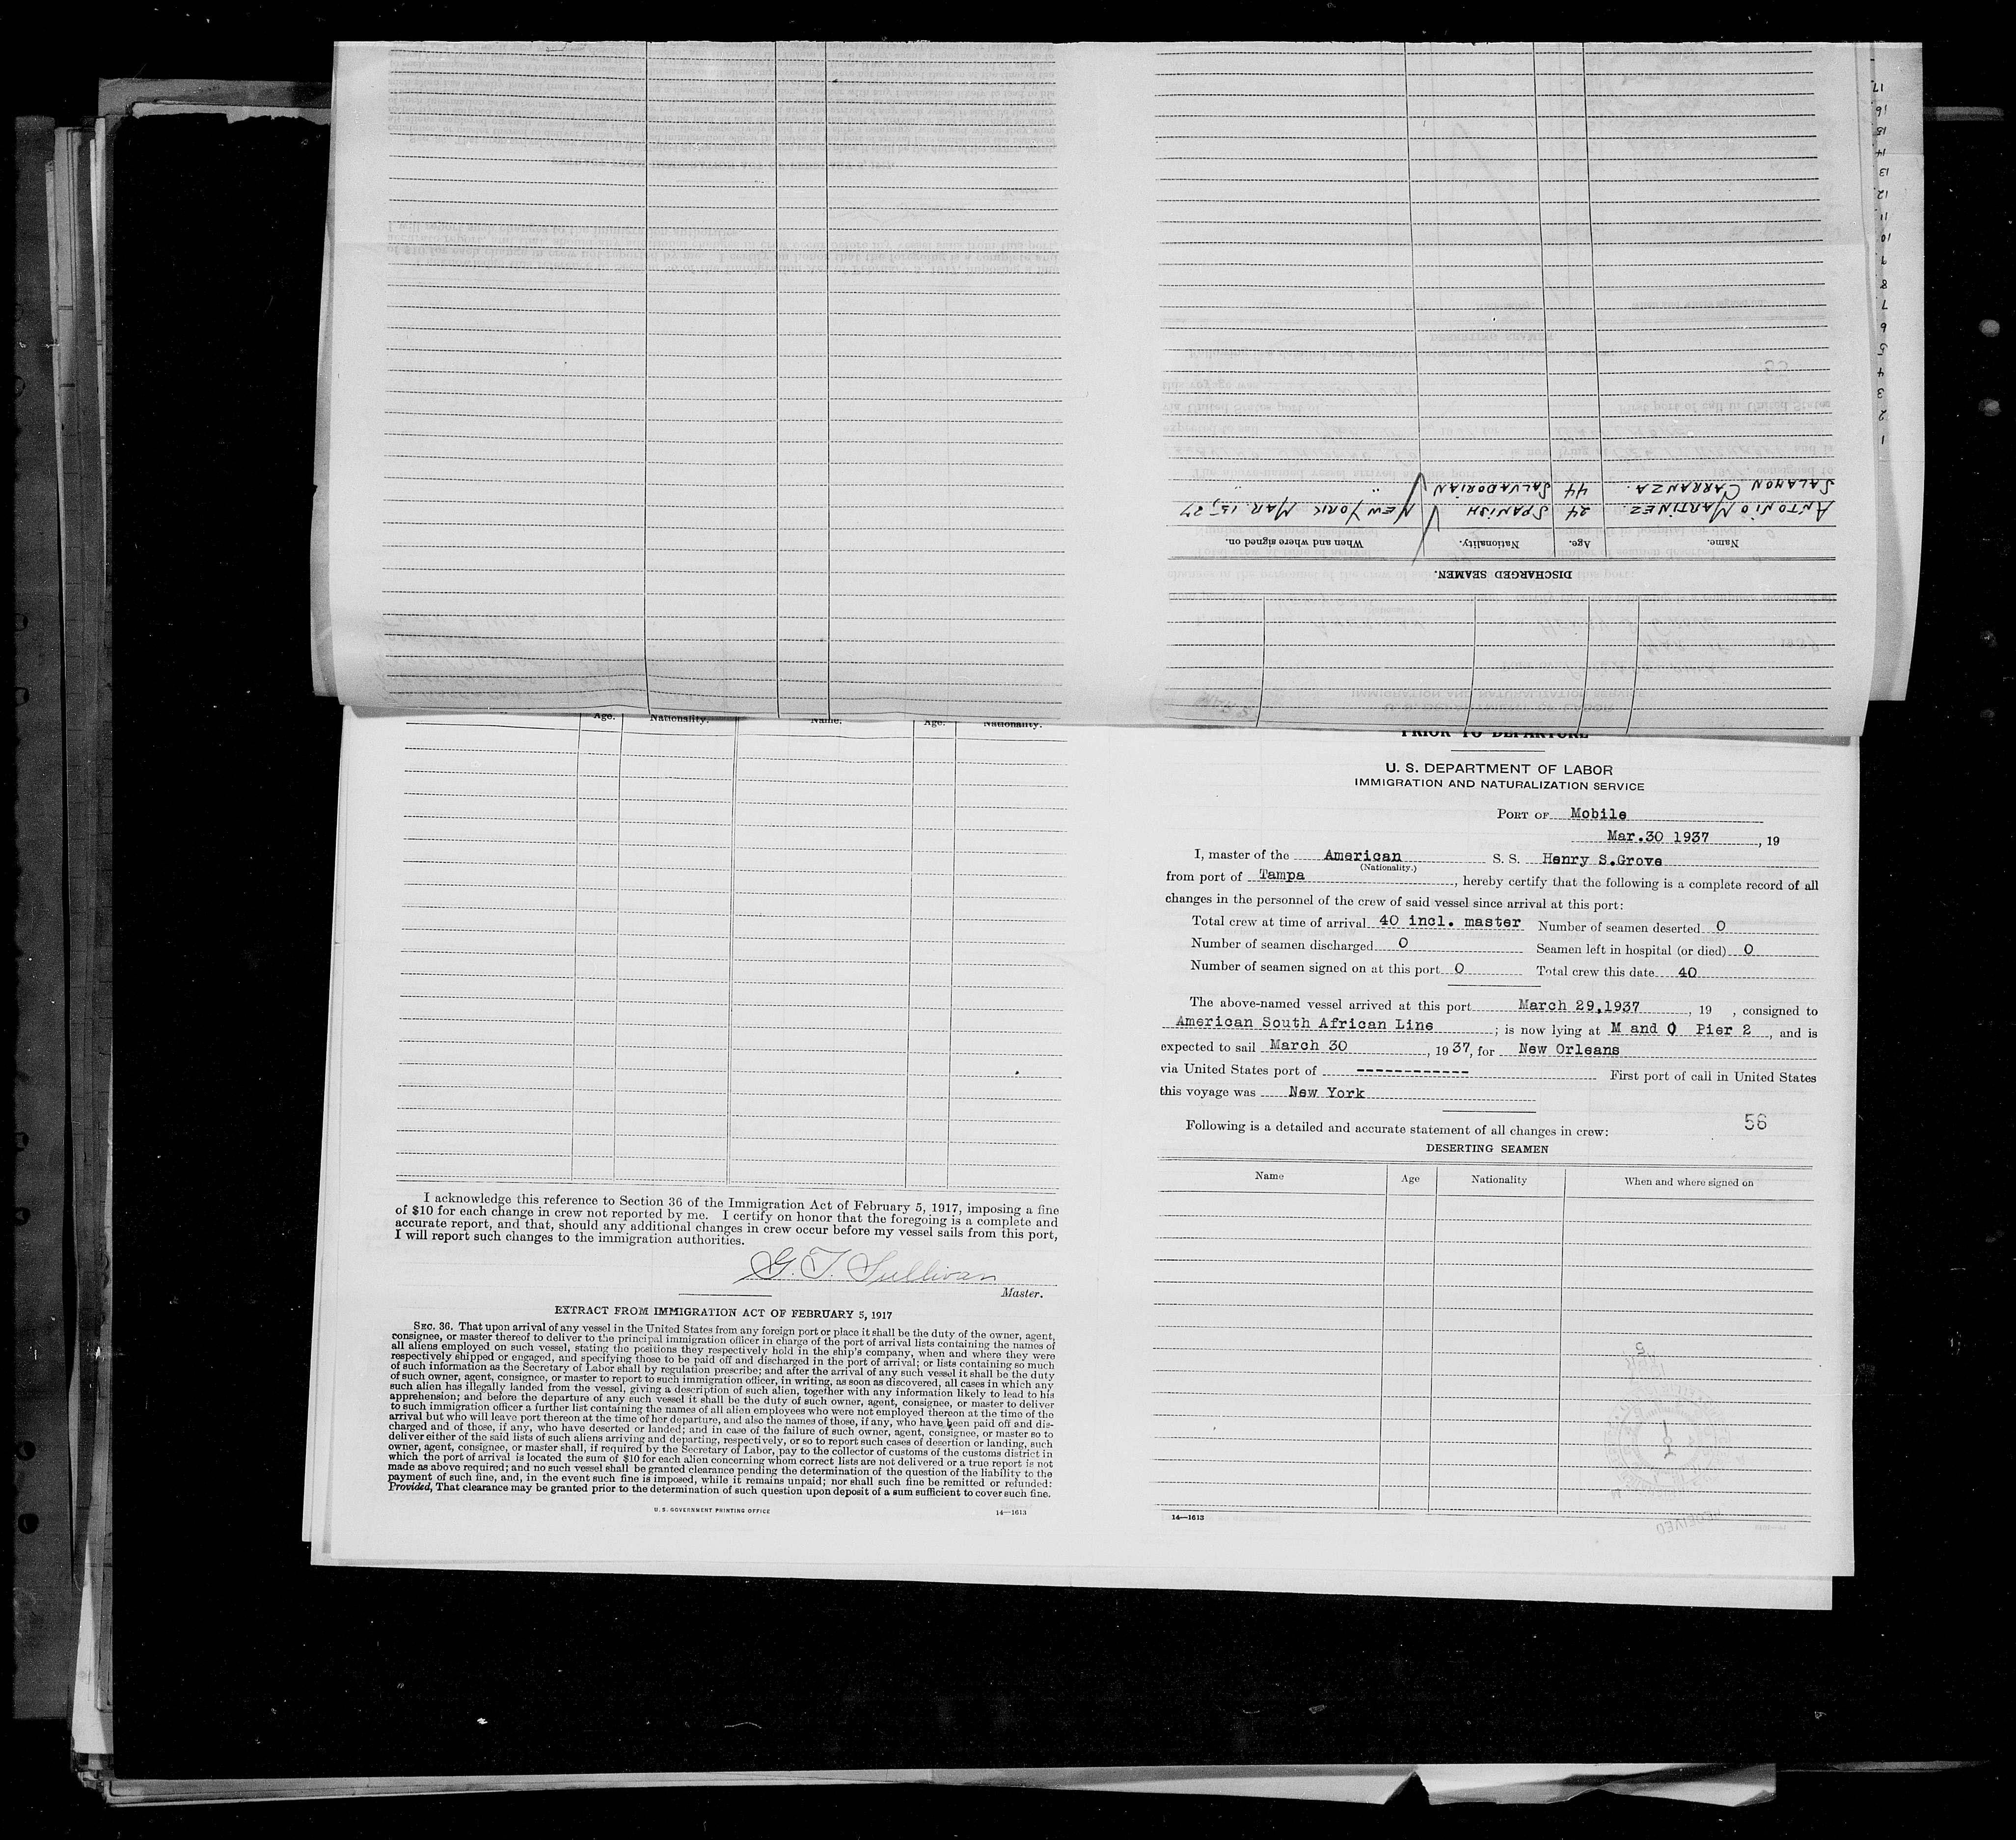 DISCHARGED SEAMEN.
Name. Age. Nationality. When and where signed on.
ANTONIO MARTINEZ. 24 SPANISH NEW YORK MAR. 15, 37
SALAMON CARRANZA. 44 SALVADORIAN " "
1
2
3
4
5
6
7
8
9
10
11
12
13
14
15
16
17
Age. Nationality. Name. Age. Nationality.
I acknowledge this reference to Section 36 of the Immigration Act of February 5, 1917, imposing a fine
of $10 for each change in crew not reported by me. I certify on honor that the foregoing is a complete and
accurate report, and that, should any additional changes in crew occur before my vessel sails from this port,
I will report such changes to the immigration authorities.
G. T. Sullivan
Master.
EXTRACT FROM IMMIGRATION ACT OF FEBRUARY 5, 1917
SEC. 36. That upon arrival of any vessel in the United States from any foreign port or place it shall be the duty of the owner, agent,
consignee, or master thereof to deliver to the principal immigration officer in charge of the port of arrival lists containing the names of
all aliens employed on such vessel, stating the positions they respectively hold in the ship's company, when and where they were
respectively shipped or engaged, and specifying those to be paid off and discharged in the port of arrival; or lists containing so much
of such information as the Secretary of Labor shall by regulation prescribe; and after the arrival of any such vessel it shall be the duty
of such owner, agent, consignee, or master to report to such immigration officer, in writing, as soon as discovered, all cases in which any
such alien has illegally landed from the vessel, giving a description of such alien, together with any information likely to lead to his
apprehension; and before the departure of any such vessel it shall be the duty of such owner, agent, consignee, or master to deliver
to such immigration officer a further list containing the names of all alien employees who were not employed thereon at the time of the
arrival but who will leave port thereon at the time of her departure, and also the names of those, if any, who have been paid off and dis-
charged and of those, if any, who have deserted or landed; and in case of the failure of such owner, agent, consignee, or master so to
deliver either of the said lists of such aliens arriving and departing, respectively, or so to report such cases of desertion or landing, such
owner, agent, consignee, or master shall, if required by the Secretary of Labor, pay to the collector of customs of the customs district in
which the port of arrival is located the sum of $10 for each alien concerning whom correct lists are not delivered or a true report is not
made as above required; and no such vessel shall be granted clearance pending the determination of the question of the liability to the
payment of such fine, and, in the event such fine is imposed, while it remains unpaid; nor shall such fine be remitted or refunded:
Provided, That clearance may be granted prior to the determination of such question upon deposit of a sum sufficient to cover such fine.
U. S. GOVERNMENT PRINTING OFFICE 14—1613
PRIOR TO DEPARTURE
U. S. DEPARTMENT OF LABOR
IMMIGRATION AND NATURALIZATION SERVICE
PORT OF Mobile
Mar.30 1937, 19
I, master of the American S. S. Henry S.Grove
(Nationality.)
from port of Tampa, hereby certify that the following is a complete record of all
changes in the personnel of the crew of said vessel since arrival at this port:
Total crew at time of arrival 40 incl. master Number of seamen deserted 0
Number of seamen discharged 0 Seamen left in hospital (or died) 0
Number of seamen signed on at this port 0 Total crew this date 40
The above-named vessel arrived at this port March 29,1937, 19 , consigned to
American South African Line; is now lying at M and O Pier 2, and is
expected to sail March 30, 1937, for New Orleans
via United States port of ------------ First port of call in United States
this voyage was New York
56
Following is a detailed and accurate statement of all changes in crew:
DESERTING SEAMEN
Name Age Nationality When and where signed on
14—1613